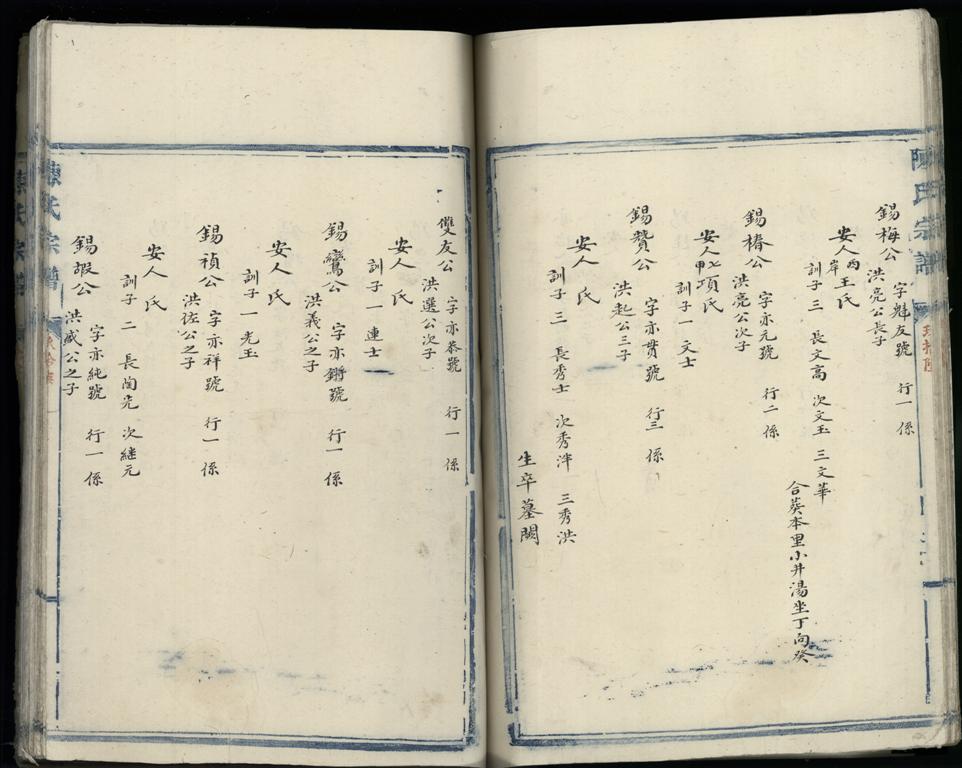 陳氏宗譜
錫梅公 字魁友號 行一 係
洪亮公長子
安人西岸王氏
訓子三 長文高 次文玉 三文華
合葵本里小井湯坐丁向癸
錫椿公 字亦元號 行二 係
洪亮公次子
安人項氏
訓子一文士
錫贊公 字亦貫號 行三 係
洪起公三子
安人 氏
訓子三 長秀士 次秀泮 三秀洪
生卒墓闕
雙友公 字亦恭號 行一 係
洪選公次子
安人 氏
訓子一連士
錫鸞公 字亦鏘號 行一 係
洪義公之子
安人 氏
訓子一光玉
錫禎公 字亦祥號 行一 係
洪佐公之子
安人 氏
訓子二 長陶光 次継元
錫嘏公 字亦純號 行一 係
洪威公之子
陳氏宗譜